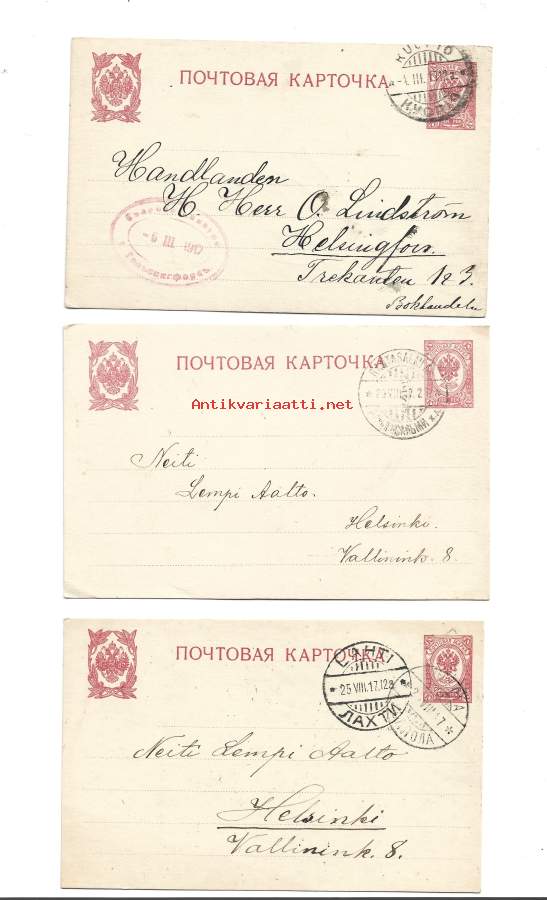 ПОЧТОВАЯ КАРТОЧКА
KUOPIO
III. 17.
КУОПІО
Handlanden
H Herr O. Lindström
Helsingfors.
Trekanten № 3.
Bokhandeln
-6 III 1917
ПОЧТОВАЯ КАРТОЧКА
Antikvariaatti.net
Neiti
Lempi Aalto.
Helsinki.
Vallinink. 8.
ПОЧТОВАЯ КАРТОЧКА
LAHTI
* 25.VIII.17.12a *
ЛАХТИ
Neiti Lempi Aalto
Helsinki
Vallinink. 8.